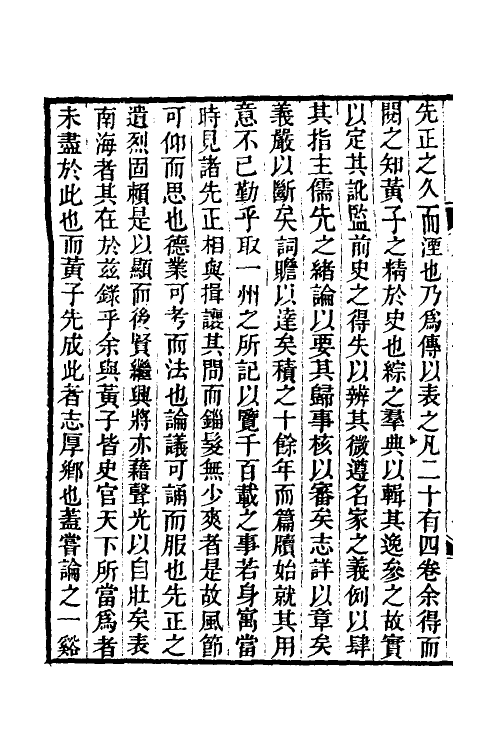 先正之久而湮也乃爲傳以表之凡二十有四卷余得而
閱之知黃子之精於史也綜之羣典以輯其逸參之故實
以定其訛監前史之得失以辨其微遵名家之義例以肆
其指主儒先之緒論以要其歸事核以審矣志詳以章矣
義嚴以斷矣詞贍以達矣積之十餘年而篇牘始就其用
意不已勤乎取一州之所記以覽千百載之事若身寓當
時見諸先正相與揖讓其間而錙髮無少爽者是故風節
可仰而思也德業可考而法也論議可誦而服也先正之
遺烈固賴是以顯而後賢繼興將亦藉聲光以自壯矣表
南海者其在於兹錄乎余與黃子皆史官天下所當爲者
未盡於此也而黃子先成此者志厚鄉也蓋嘗論之一谿